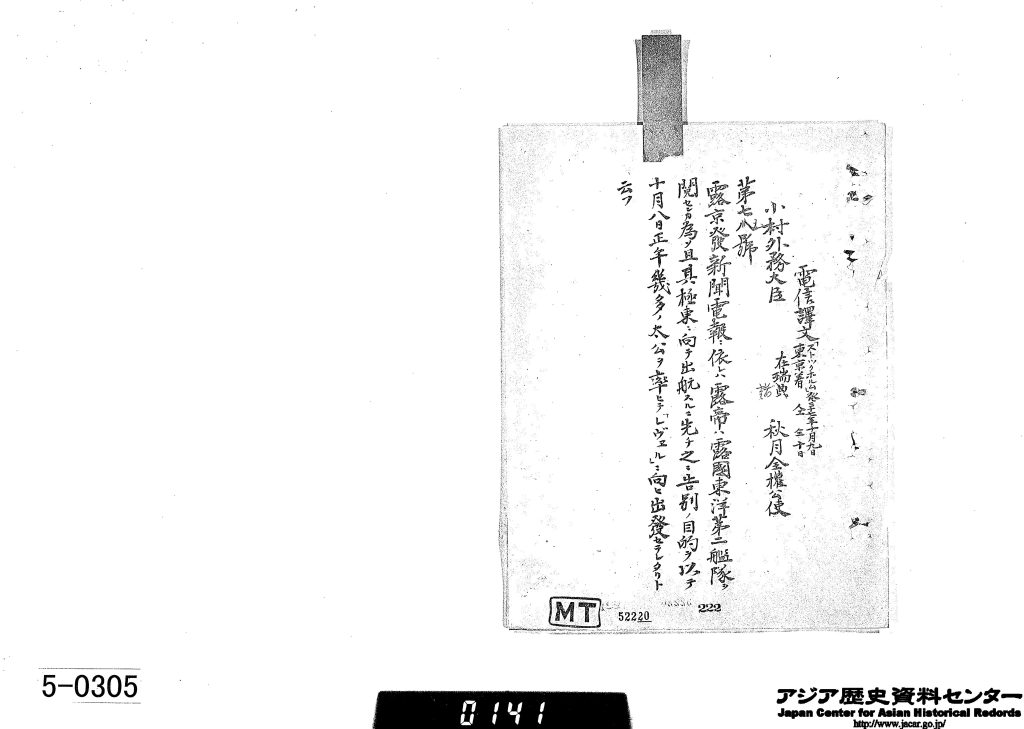 電信譯文
「ストックホルム」發三七年十月九日
東京着 仝 十日
小村外務大臣
在瑞典
秋月全權公使
第七八號
露京發新聞電報ニ依レハ露帝ハ露國東洋第二艦隊ヲ
閲セン為メ且其極東ニ向テ出航スルニ先チ之ニ告別ノ目的ヲ以テ
十月八日正午幾多ノ太公ヲ率ヒテ「レヴェル」ニ向ヒ出發セラレタリト
云フ
MT
52220
222
5-0305
0141
アジア歴史資料センター
Japan Center for Asian Historical Records
http://www.jacar.go.jp/